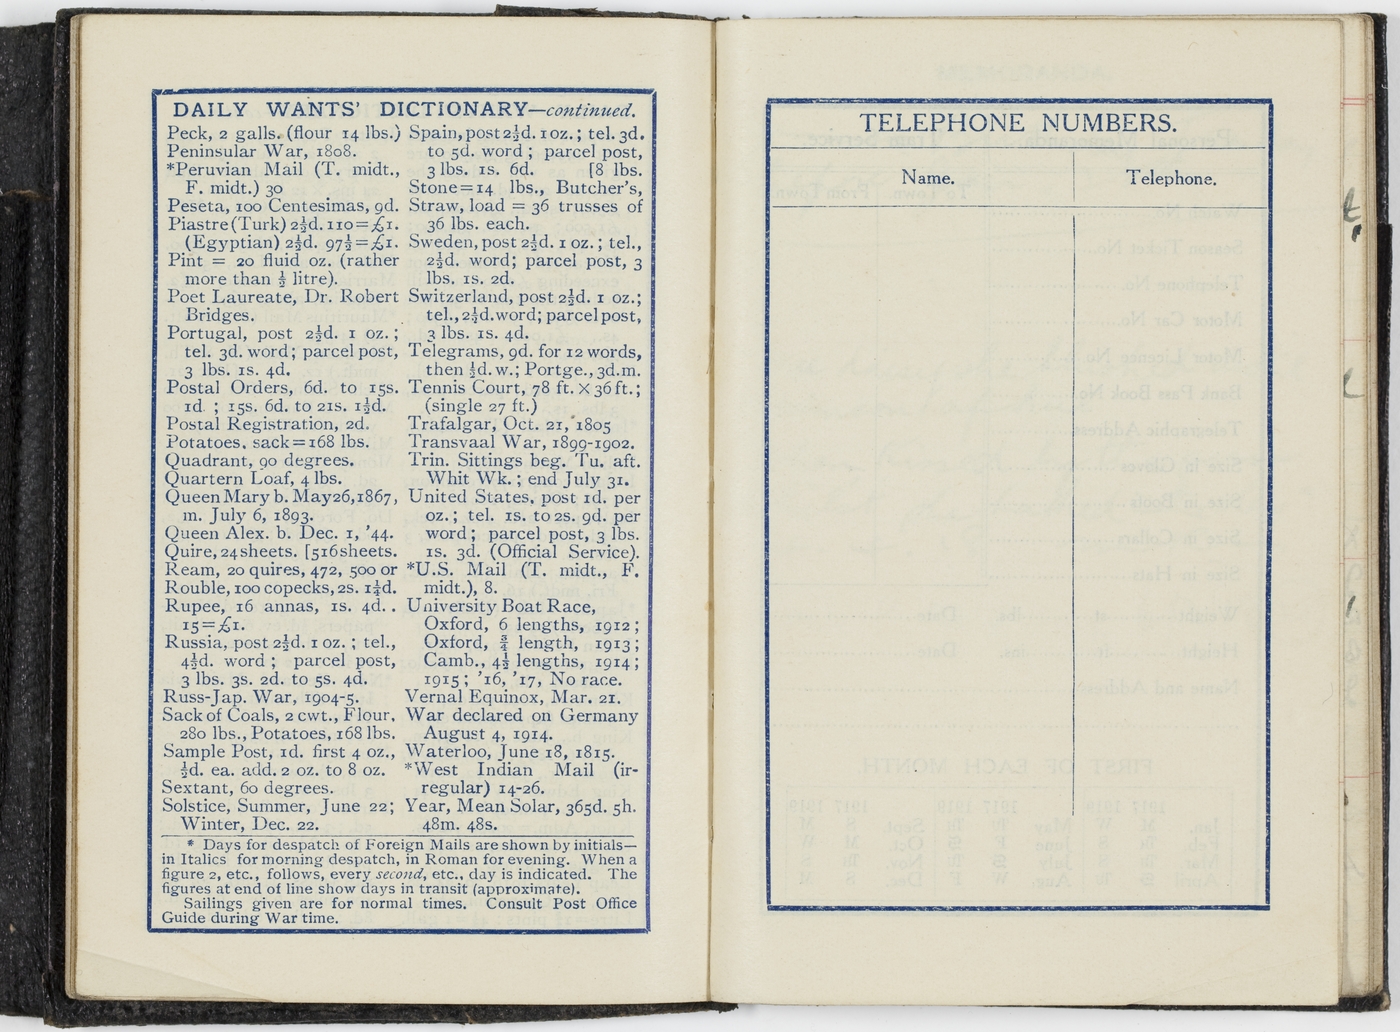 DAILY WANTS' DICTIONARY—continued.
Peck, 2 galls. (flour 14 lbs.)
Peninsular War, 1808.
*Peruvian Mail (T. midt.,
F. midt.) 30
Peseta, 100 Centesimas, 9d.
Piastre (Turk) 2½d. 110=£1.
(Egyptian) 2½d. 97½=£1.
Pint = 20 fluid oz. (rather
more than ½ litre).
Poet Laureate, Dr. Robert
Bridges.
Portugal, post 2½d. 1 oz.;
tel. 3d. word; parcel post,
3 lbs. 1s. 4d.
Postal Orders, 6d. to 15s.
1d. ; 15s. 6d. to 21s. 1½d.
Postal Registration, 2d.
Potatoes, sack=168 lbs.
Quadrant, 90 degrees.
Quartern Loaf, 4 lbs.
Queen Mary b. May 26, 1867,
m. July 6, 1893.
Queen Alex. b. Dec. 1, '44.
Quire, 24 sheets. [516 sheets.
Ream, 20 quires, 472, 500 or
Rouble, 100 copecks, 2s. 1½d.
Rupee, 16 annas, 1s. 4d..
15=£1.
Russia, post 2½d. 1 oz. ; tel.,
4½d. word ; parcel post,
3 lbs. 3s. 2d. to 5s. 4d.
Russ-Jap. War, 1904-5.
Sack of Coals, 2 cwt., Flour,
280 lbs., Potatoes, 168 lbs.
Sample Post, 1d. first 4 oz.,
½d. ea. add. 2 oz. to 8 oz.
Sextant, 60 degrees.
Solstice, Summer, June 22;
Winter, Dec. 22.
Spain, post 2½d. 1 oz.; tel. 3d.
to 5d. word ; parcel post,
3 lbs. 1s. 6d. [8 lbs.
Stone=14 lbs., Butcher's,
Straw, load = 36 trusses of
36 lbs. each.
Sweden, post 2½d. 1 oz.; tel.,
2½d. word; parcel post, 3
lbs. 1s. 2d.
Switzerland, post 2½d. 1 oz.;
tel., 2½d. word; parcel post,
3 lbs. 1s. 4d.
Telegrams, 9d. for 12 words,
then ½d. w.; Portge., 3d.m.
Tennis Court, 78 ft. X 36 ft.;
(single 27 ft.)
Trafalgar, Oct. 21, 1805
Transvaal War, 1899-1902.
Trin. Sittings beg. Tu. aft.
Whit Wk. ; end July 31.
United States, post 1d. per
oz. ; tel. 1s. to 2s. 9d. per
word ; parcel post, 3 lbs.
1s. 3d. (Official Service).
*U.S. Mail (T. midt., F.
midt.), 8.
University Boat Race,
Oxford, 6 lengths, 1912 ;
Oxford, ¾ length, 1913 ;
Camb., 4½ lengths, 1914 ;
1915 ; '16, '17, No race.
Vernal Equinox, Mar. 21.
War declared on Germany
August 4, 1914.
Waterloo, June 18, 1815.
*West Indian Mail (ir-
regular) 14-26.
Year, Mean Solar, 365d. 5h.
48m. 48s.
* Days for despatch of Foreign Mails are shown by initials—
in Italics for morning despatch, in Roman for evening. When a
figure 2, etc., follows, every second, etc., day is indicated. The
figures at end of line show days in transit (approximate).
Sailings given are for normal times. Consult Post Office
Guide during War time.
TELEPHONE NUMBERS.
Name. Telephone.